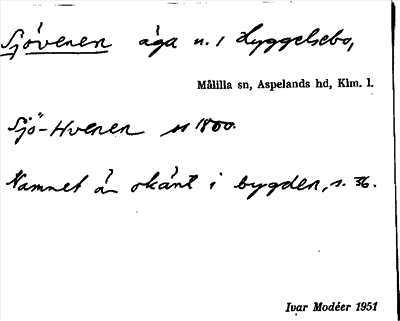 Sjövenen äga u. 1 Hyggelsebo,
Målilla sn, Aspelands hd, Klm. l.
Sjö-Hvenen 1800.
Namnet är okänt i bygden, s. 36.
Ivar Modéer 1951